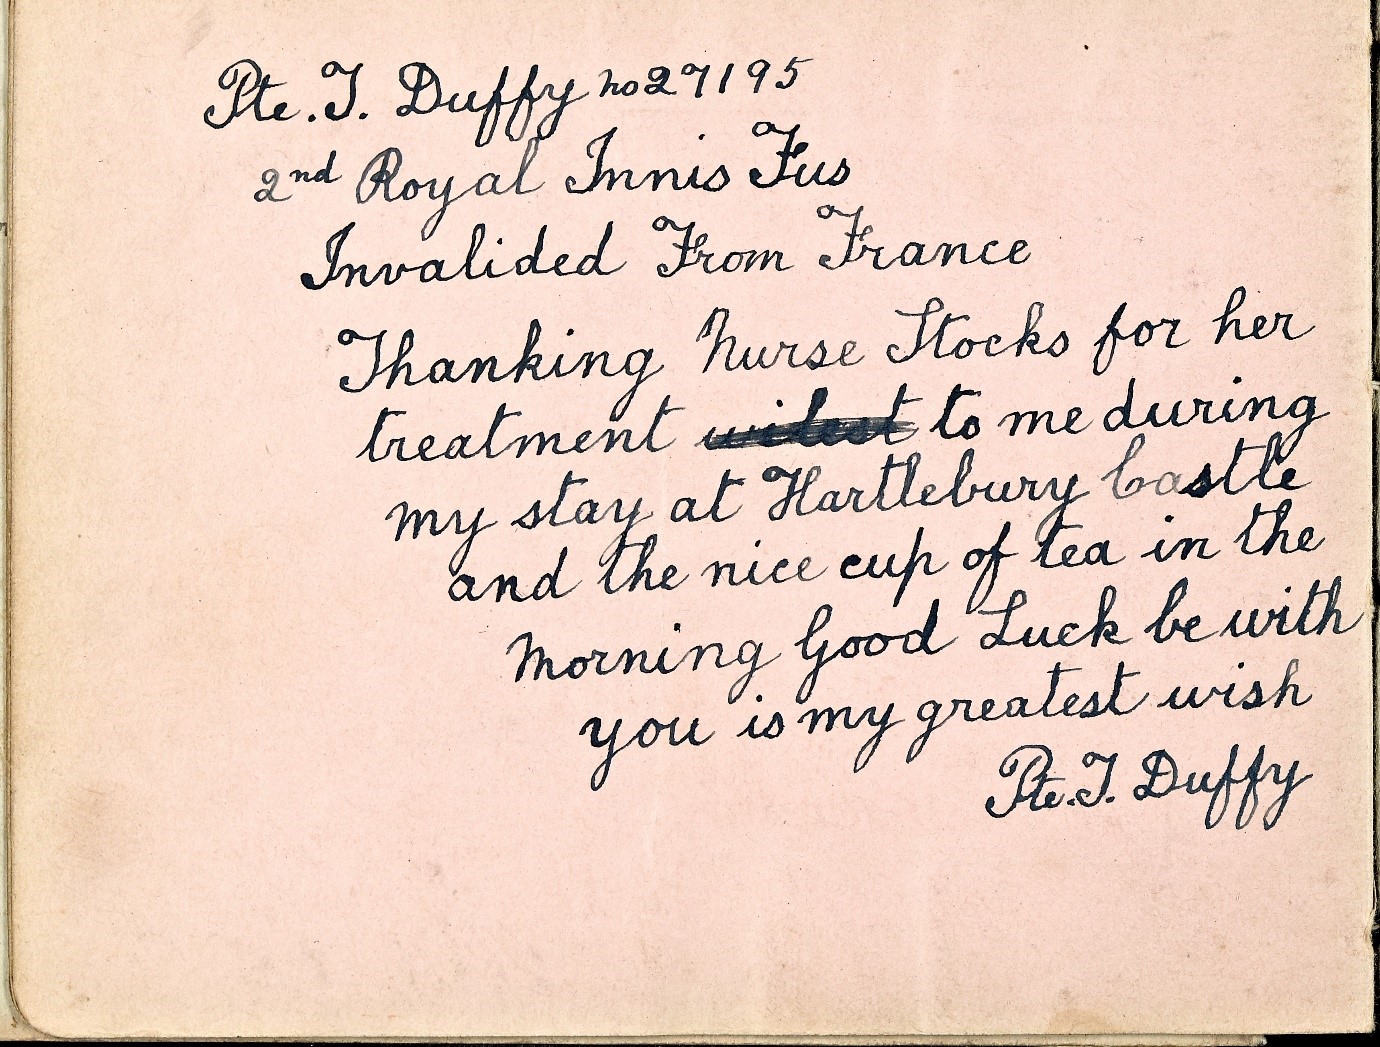 Pte. T. Duffy no 27195
2nd Royal Innis Fus
Invalided From France
Thanking Nurse Stocks for her
treatment to me during
my stay at Hartlebury Castle
and the nice cup of tea in the
Morning Good Luck be with
you is my greatest wish
Pte. T. Duffy